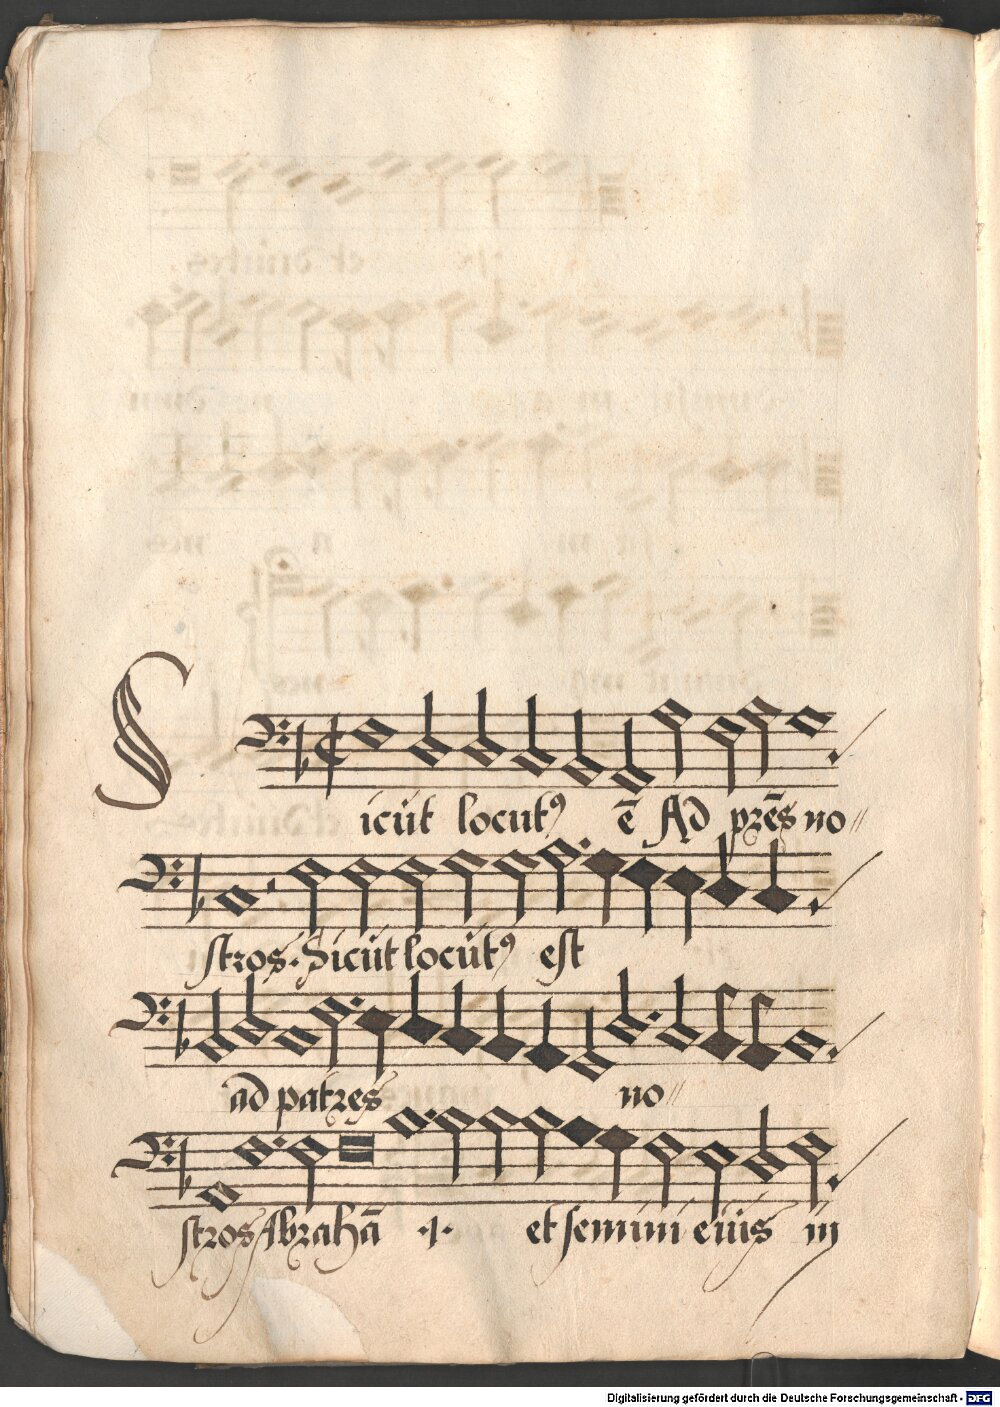 Sicut locutꝰ ē Ad prēs no//
stros. Sicut locutꝰ est
ad patres no//
stros Abrahā ·/· et semini eius in
Digitalisierung gefördert durch die Deutsche Forschungsgemeinschaft - DFG